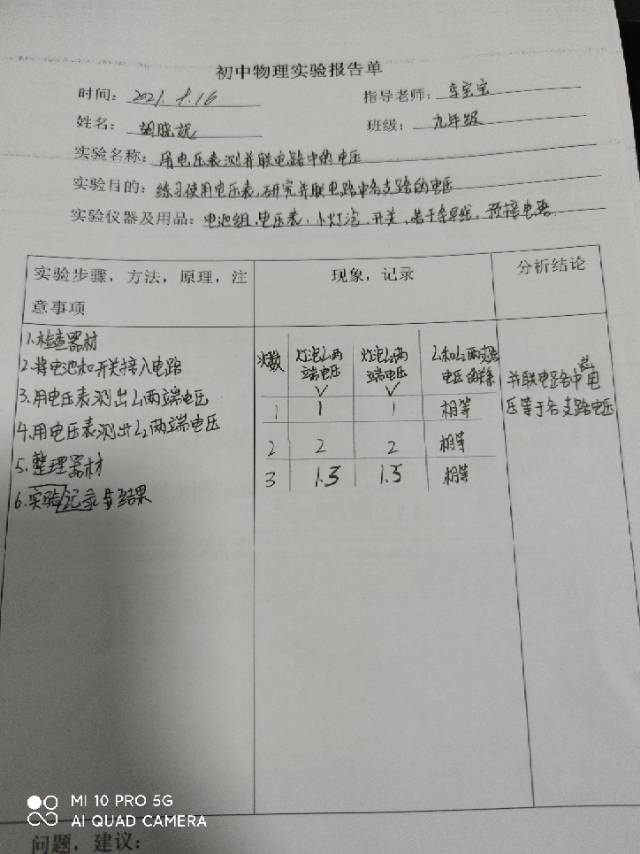 初中物理实验报告单
时间: 2021.8.16 指导老师:
姓名: 胡晓妮 班级: 九年级
实验名称: 用电压表测并联电路中的电压
实验目的: 练习使用电压表,研究并联电路中各支路的电压
实验仪器及用品: 电池组,电压表,小灯泡,开关,若干条导线,预接电路
实验步骤,方法,原理,注意事项 现象,记录 分析结论
1.检查器材
2.将电池和开关接入电路
3.用电压表测出L1两端电压
4.用电压表测出L2两端电压
5.整理器材
6.实验记录与结果
次数 灯泡L1两端电压 V 灯泡L2两端电压 V L1和L2两端电压的关系
1 1 1 相等
2 2 2 相等
3 1.5 1.5 相等
并联电路各中总电
压等于各支路电压
问题,建议:
MI 10 PRO 5G
AI QUAD CAMERA